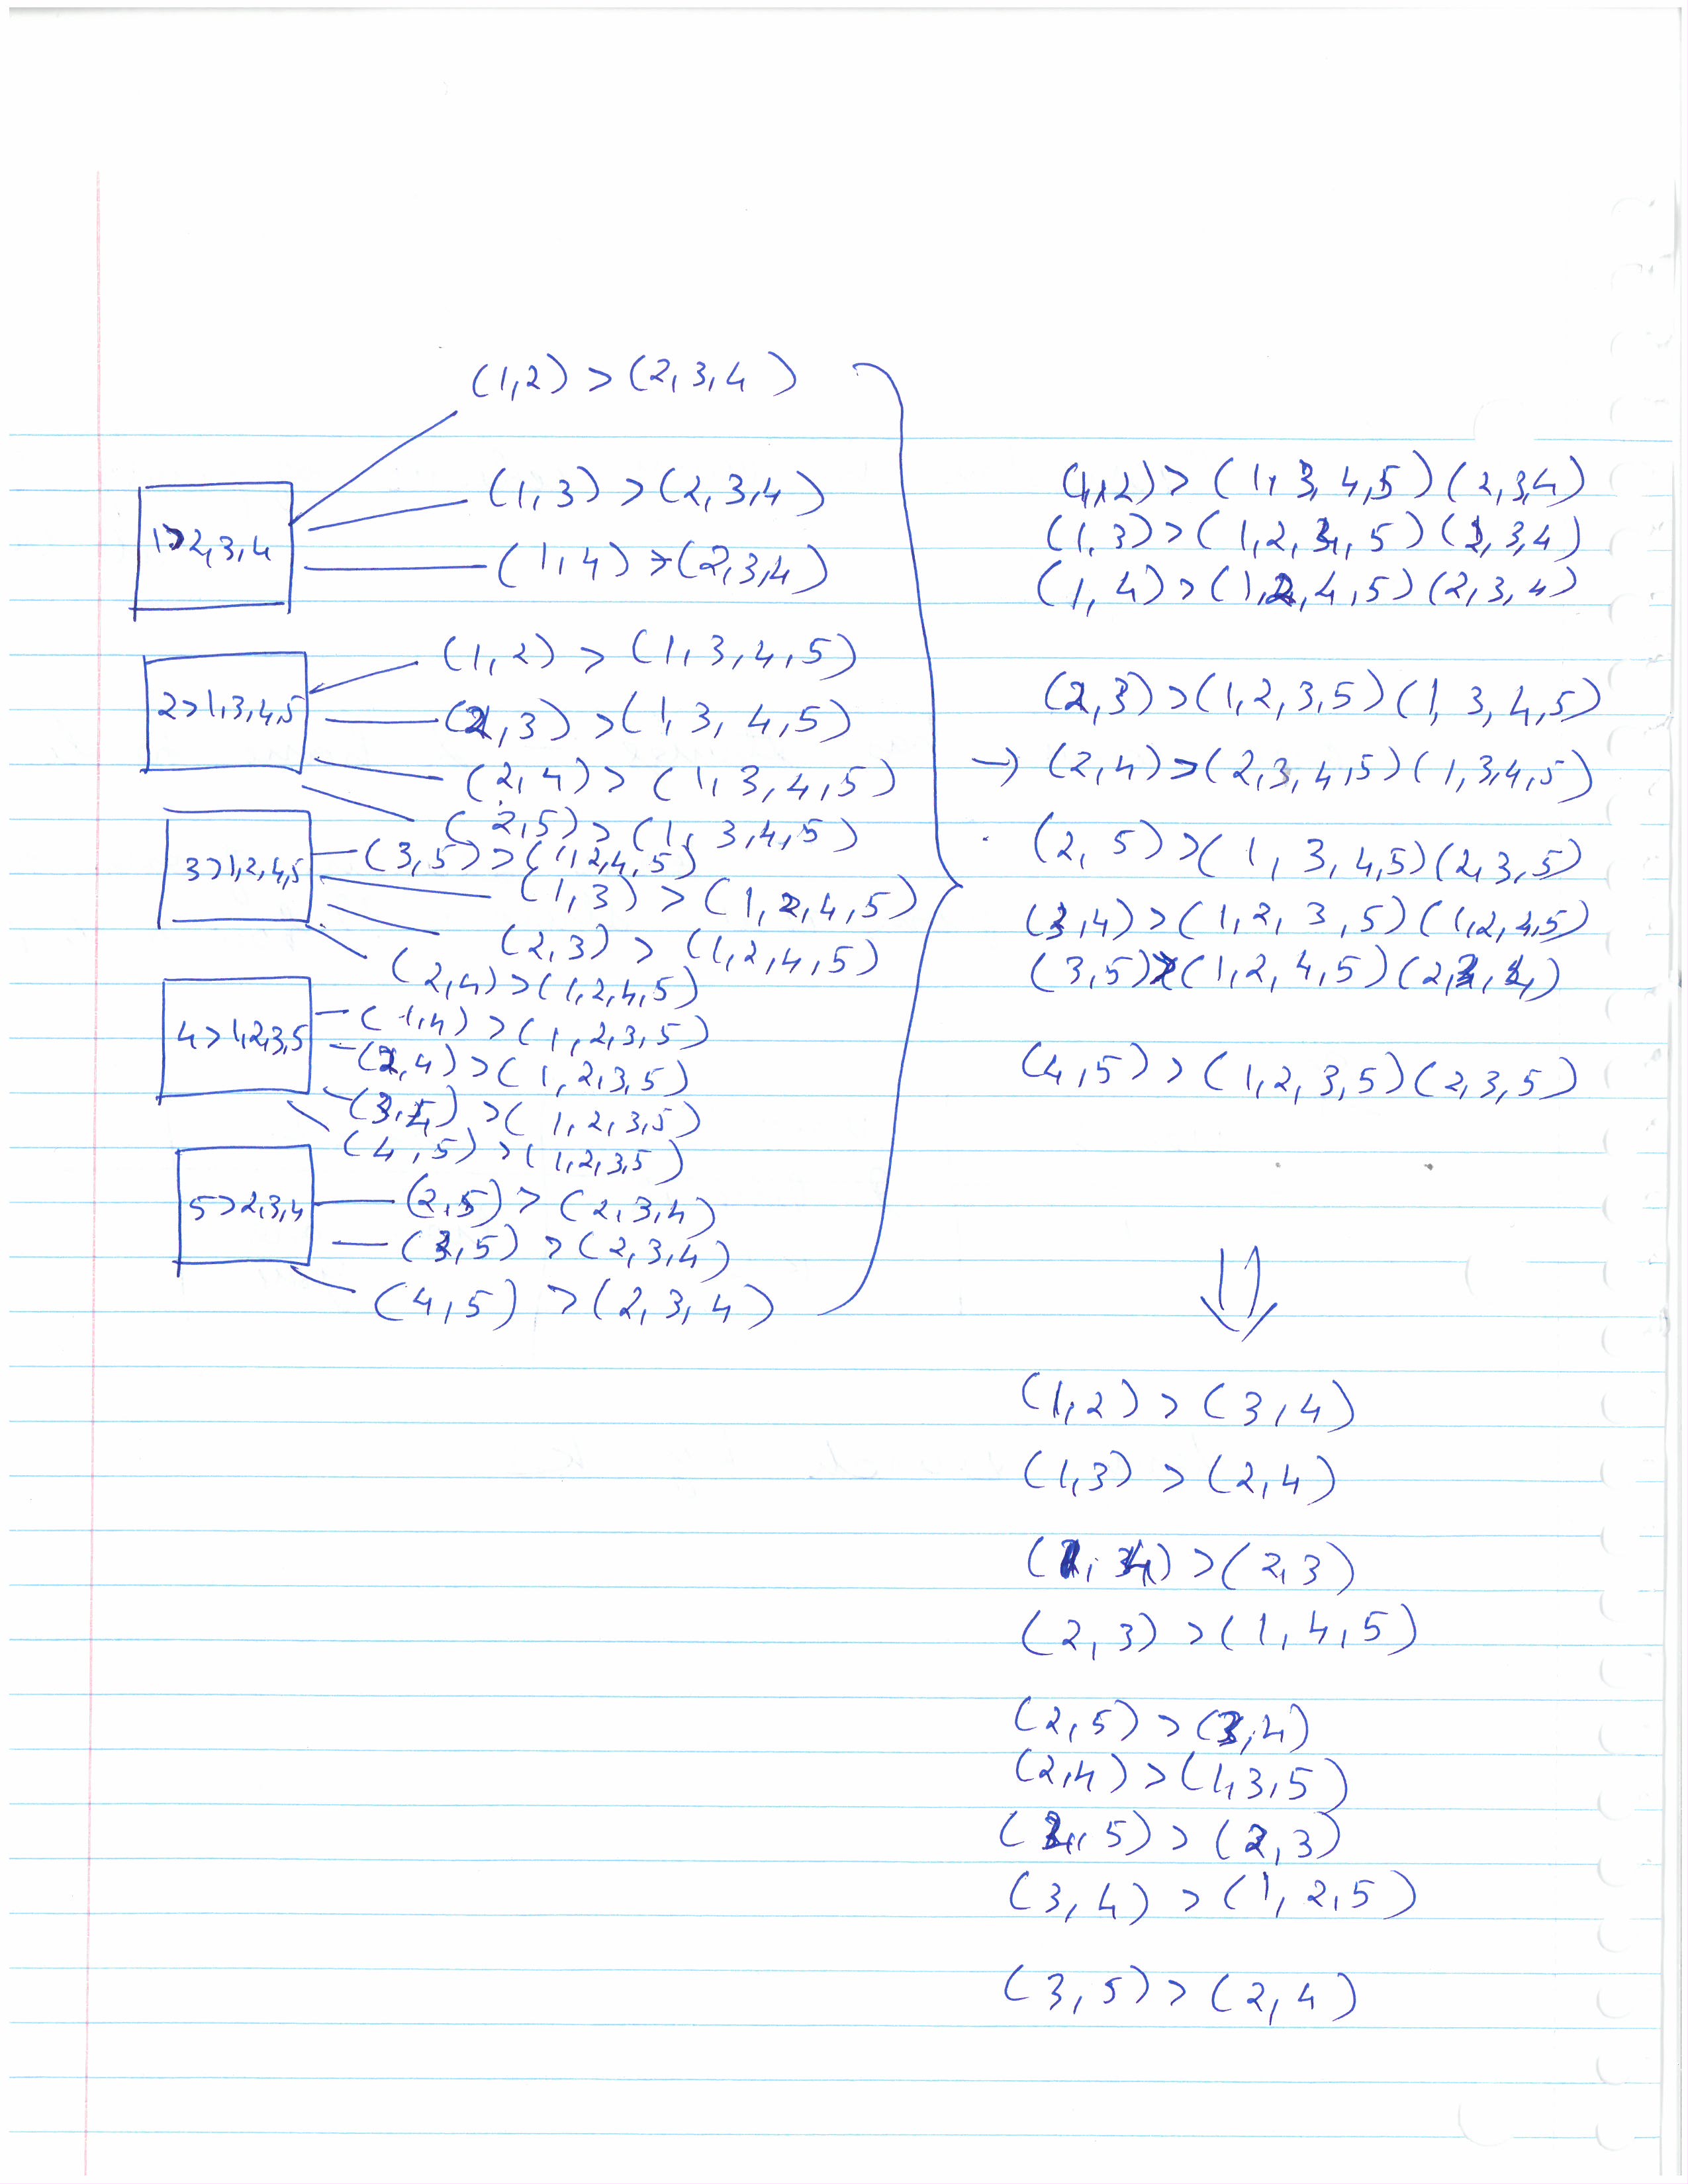 (1,2) > (2,3,4)
1>2,3,4
(1,3) > (2,3,4)
(1,4) > (2,3,4)
2>1,3,4,5
(1,2) > (1,3,4,5)
(2,3) > (1,3,4,5)
(2,4) > (1,3,4,5)
(2,5) > (1,3,4,5)
3>1,2,4,5
(3,5) > (1,2,4,5)
(1,3) > (1,2,4,5)
(2,3) > (1,2,4,5)
(2,4) > (1,2,4,5)
4>1,2,3,5
(1,4) > (1,2,3,5)
(2,4) > (1,2,3,5)
(3,4) > (1,2,3,5)
(4,5) > (1,2,3,5)
5>2,3,4
(2,5) > (2,3,4)
(3,5) > (2,3,4)
(4,5) > (2,3,4)
(1,2) > (1,3,4,5)(2,3,4)
(1,3) > (1,2,4,5)(2,3,4)
(1,4) > (1,2,4,5)(2,3,4)
(2,3) > (1,2,3,5)(1,3,4,5)
→ (2,4) > (2,3,4,5)(1,3,4,5)
(2,5) > (1,3,4,5)(2,3,5)
(3,4) > (1,2,3,5)(1,2,4,5)
(3,5) > (1,2,4,5)
(4,5) > (1,2,3,5)(2,3,5)
⇓
(1,2) > (3,4)
(1,3) > (2,4)
(1,4) > (2,3)
(2,3) > (1,4,5)
(2,5) > (3,4)
(2,4) > (1,3,5)
(4,5) > (2,3)
(3,4) > (1,2,5)
(3,5) > (2,4)